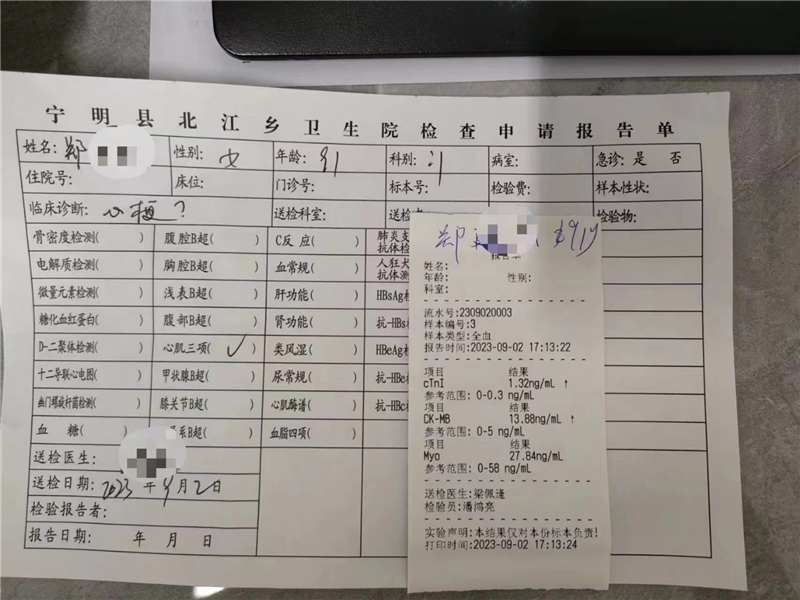 宁明县北江乡卫生院检查申请报告单
姓名: 郑 性别: 女 年龄: 91 科别: 病室: 急诊: 是 否
住院号: 床位: 门诊号: 标本号: 检验费: 样本性状:
临床诊断: 心梗? 送检科室: 送检 检验物:
骨密度检测( ) 腹腔B超( ) C反 应( ) 肺炎支 抗体检
电解质检测( ) 胸腔B超( ) 血常规( ) 人狂犬 抗体测
微量元素检测( ) 浅表B超( ) 肝功能( ) HBsAg
糖化血红蛋白( ) 腹部B超( ) 肾功能( ) 抗-HBs
D-二聚体检测( ) 心肌三项( ✓ ) 类风湿( ) HBeAg
十二导联心电图( ) 甲状腺B超( ) 尿常规( ) 抗-HBe
幽门螺旋杆菌检测( ) 膝关节B超( ) 心肌酶谱( ) 抗-HBc
血 糖( ) 系B超( ) 血脂四项( )
送检医生:
送检日期: 2023年9月2日
检验报告者:
报告日期: 年 月 日
郑 女 91岁
报告单
姓名:
年龄: 性别:
科室:
流水号:2309020003
样本编号:3
样本类型:全血
报告时间:2023-09-02 17:13:22
项目 结果
cTnI 1.32ng/mL ↑
参考范围: 0-0.3 ng/mL
项目 结果
CK-MB 13.88ng/mL ↑
参考范围: 0-5 ng/mL
项目 结果
Myo 27.84ng/mL
参考范围: 0-58 ng/mL
送检医生:梁佩逢
检验员:潘鸿亮
实验声明:本结果仅对本份标本负责!
打印时间:2023-09-02 17:13:24